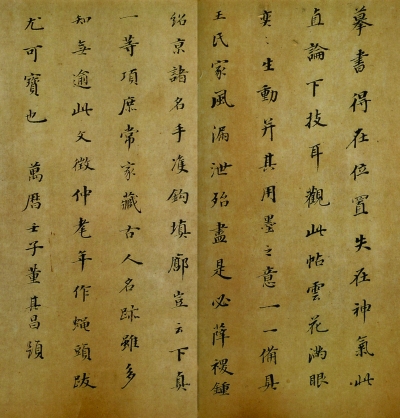 摹書得在位置失在神氣此
直論下技耳觀此帖雲花滿眼
奕〻生動并其用墨之意一一備具
王氏家風漏泄殆盡是必薛稷鍾
紹京諸名手雙鉤填廓豈云下真
一等項庶常家藏古人名跡雖多
知無逾此文徵仲耄年作蠅頭跋
尤可寶也 萬曆壬子董其昌題